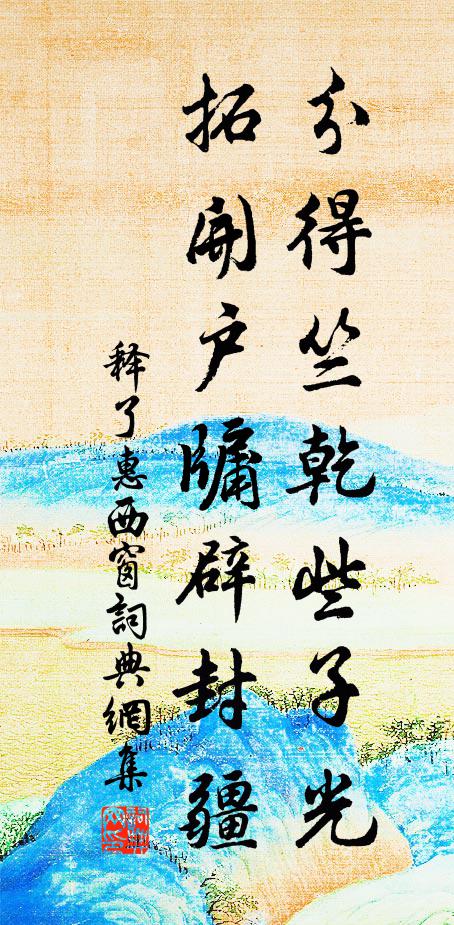 分得竺乾些子光
拓開户牖辟封疆
释了惠西窗詞典網集